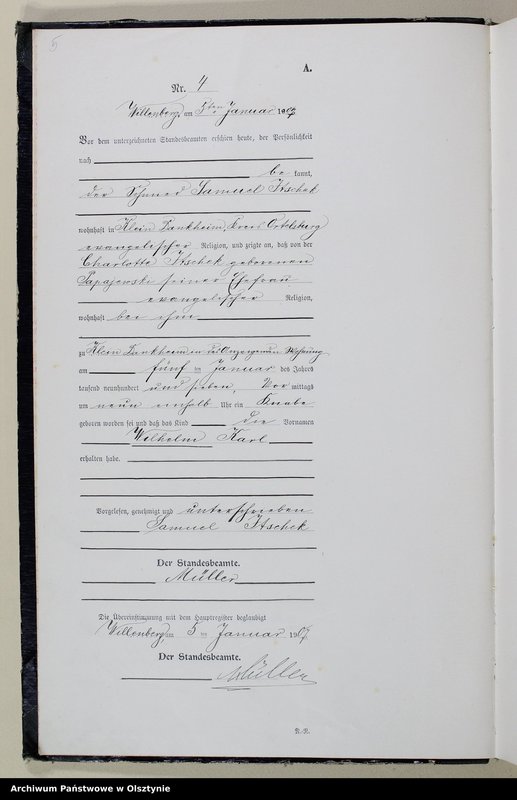 5
A.
Nr. 4
Willenberg, am 5ten Januar 1907
Vor dem unterzeichneten Standesbeamten erschien heute, der Persönlichkeit
nach
be kannt,
der Samuel Itschek
wohnhaft in Klein Dankheim, Kreis Ortelsburg
evangelischer Religion, und zeigte an, daß von der
Charlotte Itschek geborenen
Papajewski seiner Ehefrau
evangelischer Religion,
wohnhaft bei ihm
zu Klein Dankheim in des Anzeigenden Wohnung
am fünf ten Januar des Jahres
tausend neunhundert und sieben, Vor mittags
um neun einhalb Uhr ein Knabe
geboren worden sei und daß das Kind die Vornamen
Wilhelm Karl
erhalten habe.
Vorgelesen, genehmigt und unterschrieben
Samuel Itschek
Der Standesbeamte.
Müller
Die Übereinstimmung mit dem Hauptregister beglaubigt
Willenberg, am 5 ten Januar 1907
Der Standesbeamte.
Müller
N.-R.
Archiwum Państwowe w Olsztynie